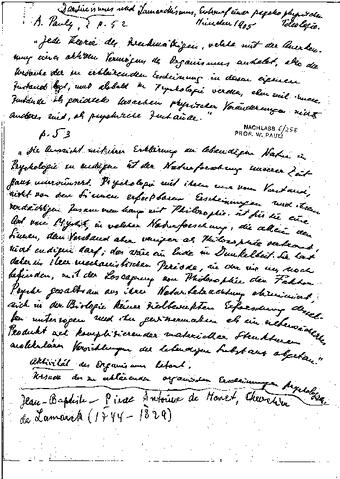 Darwinismus und Lamarckismus, Entwurf einer psychophysischen
Teleologie.
A. Pauly, p. 52 München 1905
"Jede Theorie des Zweckmäßigen, welche mit der Anerken-
nung eines aktiven Vermögens des Organismus anhebt, also die
Ursache der zu erklärenden Erscheinung in dessen eigenen
Zustand legt, muß deshalb zu Psychologie werden, eben weil innere
Zustände als Ursachen physischer Veränderungen nichts
anderes sind, als psychische Zustände."
NACHLASS 6/258
PROF. W. PAULI
p. 53
"die Aussicht mit ihrer Erklärung der lebendigen Natur in
Psychologie zu endigen ist der Naturforschung unserer Zeit
ganz unerwünscht. Psychologie mit ihren nur vom Verstand,
nicht von den Sinnen erfassbaren Erscheinungen und ihrem
verdächtigen Zusammenhang mit Philosophie, ist für sie eine
Art von Mystik, in welcher Naturforschung, die allein den
Sinnen, dem Verstand aber weniger als Philosophie vertraut,
nicht endigen darf; das wäre ein Ende in Dunkelheit. Sie hat
daher in ihrer mechanistischen Periode, in der wir uns noch
befinden, mit der Lossagung von Philosophie den Faktor
Psyche gewaltsam aus ihrer Naturbetrachtung
sich in der Biologie keiner zielbewussten Erforschung desselben
unterzogen und ihn gewissermaßen als ein nebensächliches
Produkt sich komplizierender materieller Strukturen
molekularer Vorrichtungen der lebendigen Substanz abgetan."
Aktivität des Organismus betont.
Ursache der zu erklärenden organischen Erscheinungen psychologisch.
Jean-Baptiste-Pierre Antoine de Monet, Chevalier
de Lamarck (1744-1829)